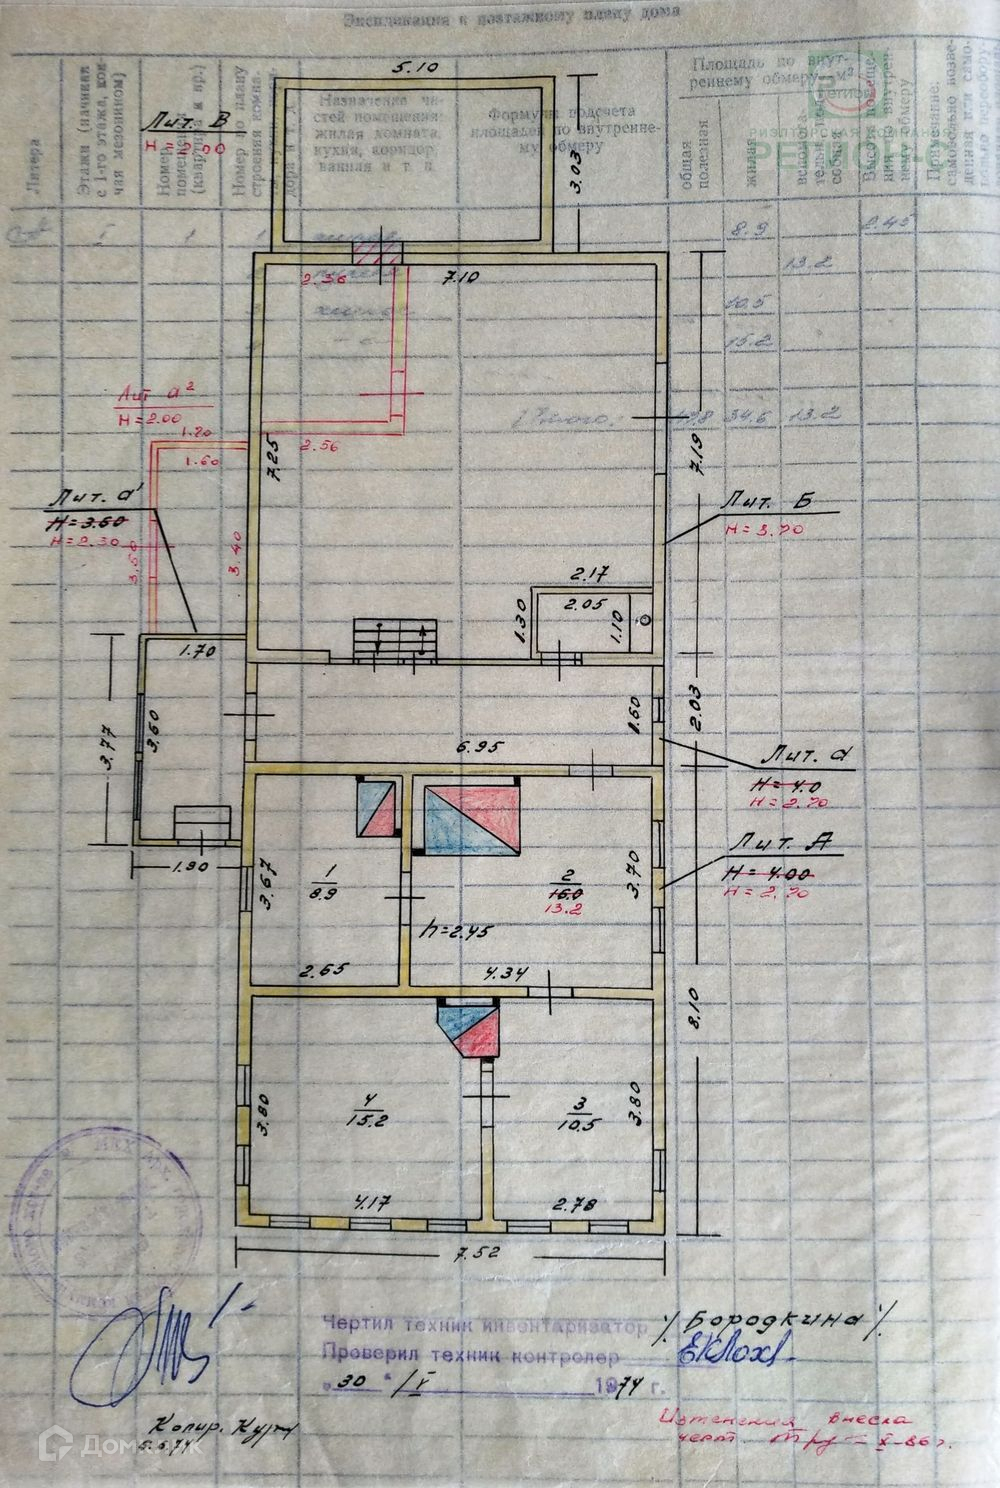 Экспликация к поэтажному плану дома
Литера
Этажи (начиная с 1-го этажа, кончая мезонином)
Номер помещения (квартира и пр.)
Номер по плану строения
Назначение частей помещения: жилая комната, кухня, коридор, ванная и т. п.
Формула подсчета площадей по внутреннему обмеру
Площадь по внутреннему обмеру, м²
общая полезная
жилая
РИЭЛТОРСКАЯ КОМПАНИЯ
РЕГИОН-С
I 1 1 8.9 2.45
13.2
3 10.5
15.2
Итого: 34.6 13.2
5.10
Лит. В
3.03
2.36
7.10
Лит a²
H=2.00
1.70
1.60
2.56
7.25
7.19
Лит. a'
H=3.60
H=2.30
3.50
3.40
Лит. Б
H=3.70
2.17
2.05
1.30
1.10
1.70
3.77
3.60
1.60
2.03
6.95
Лит. a
H=4.0
H=2.70
1.90
3.67
1
8.9
2
16.0
13.2
3.70
Лит. А
H=4.00
H=2.70
h=2.45
2.65
4.34
8.10
3.80
4
15.2
3
10.5
3.80
4.17
2.78
7.52
Чертил техник инвентаризатор /Бородкина/
Проверил техник контролер
„30“ /V 1974 г.
Копир.
5.6.74
Изменения внесла
X-86г.
Домклик